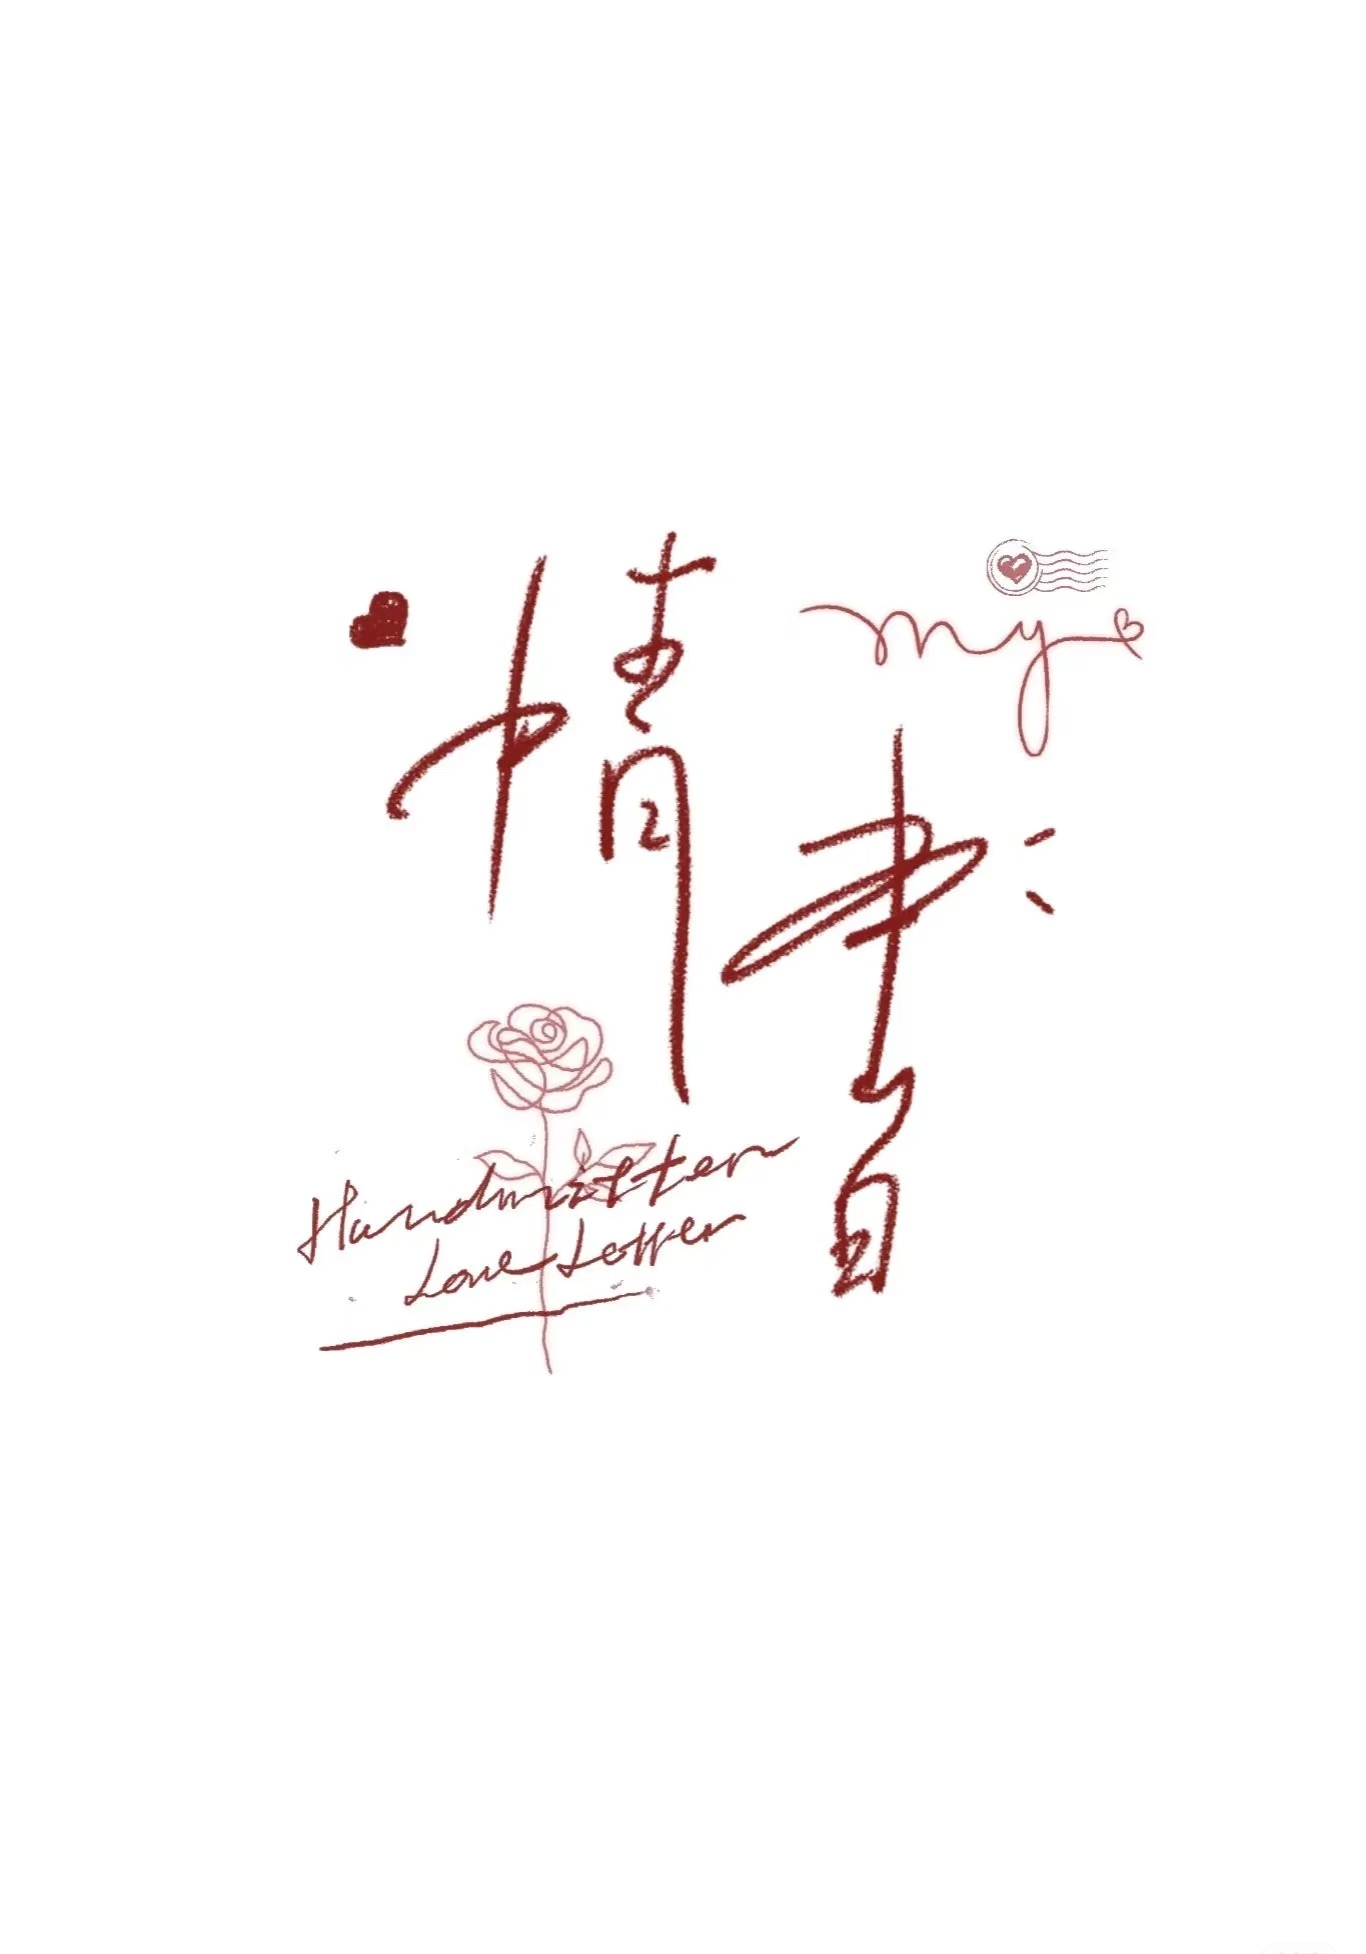 my
情書
Handwritten
Love Letter